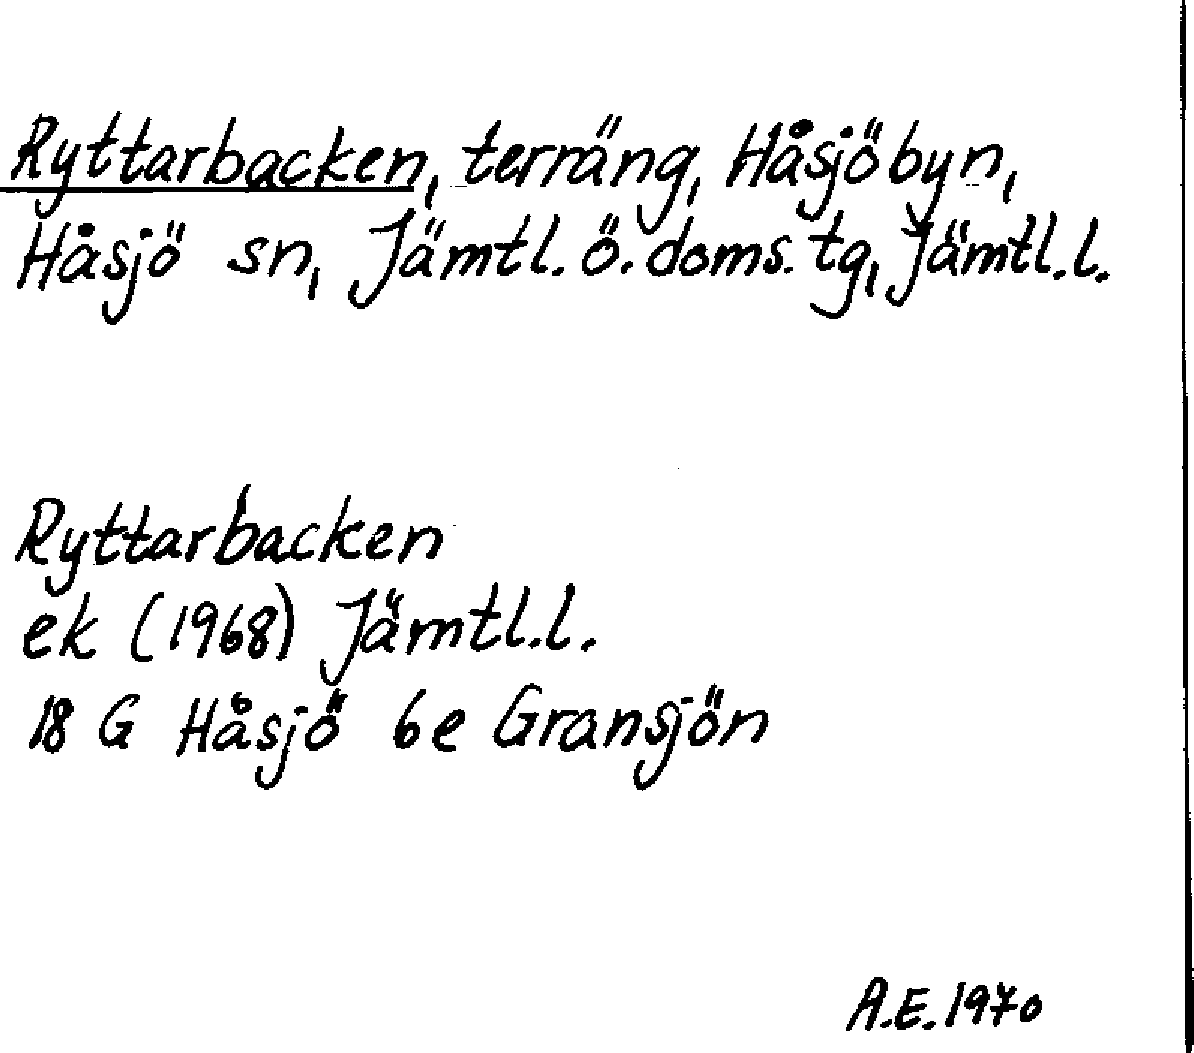 Ryttarbacken, terräng, Håsjöbyn,
Håsjö sn, Jämtl. ö. doms. tg, Jämtl.l.
Ryttarbacken
ek (1968) Jämtl.l.
18 G Håsjö 6e Gransjön
A.E. 1970